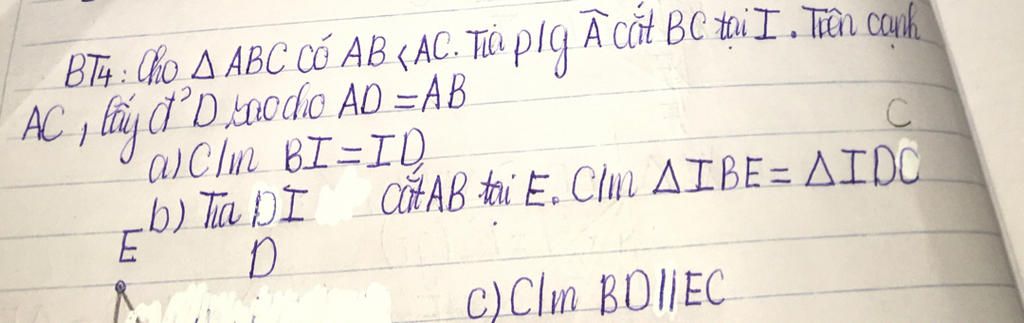 BT4: Cho △ ABC có AB < AC. Tia p/g Â cắt BC tại I. Trên cạnh
AC, lấy đ' D sao cho AD = AB
C
a) C/m BI = ID
b) Tia DI cắt AB tại E. C/m △IBE = △IDC
E
D
c) C/m BD // EC